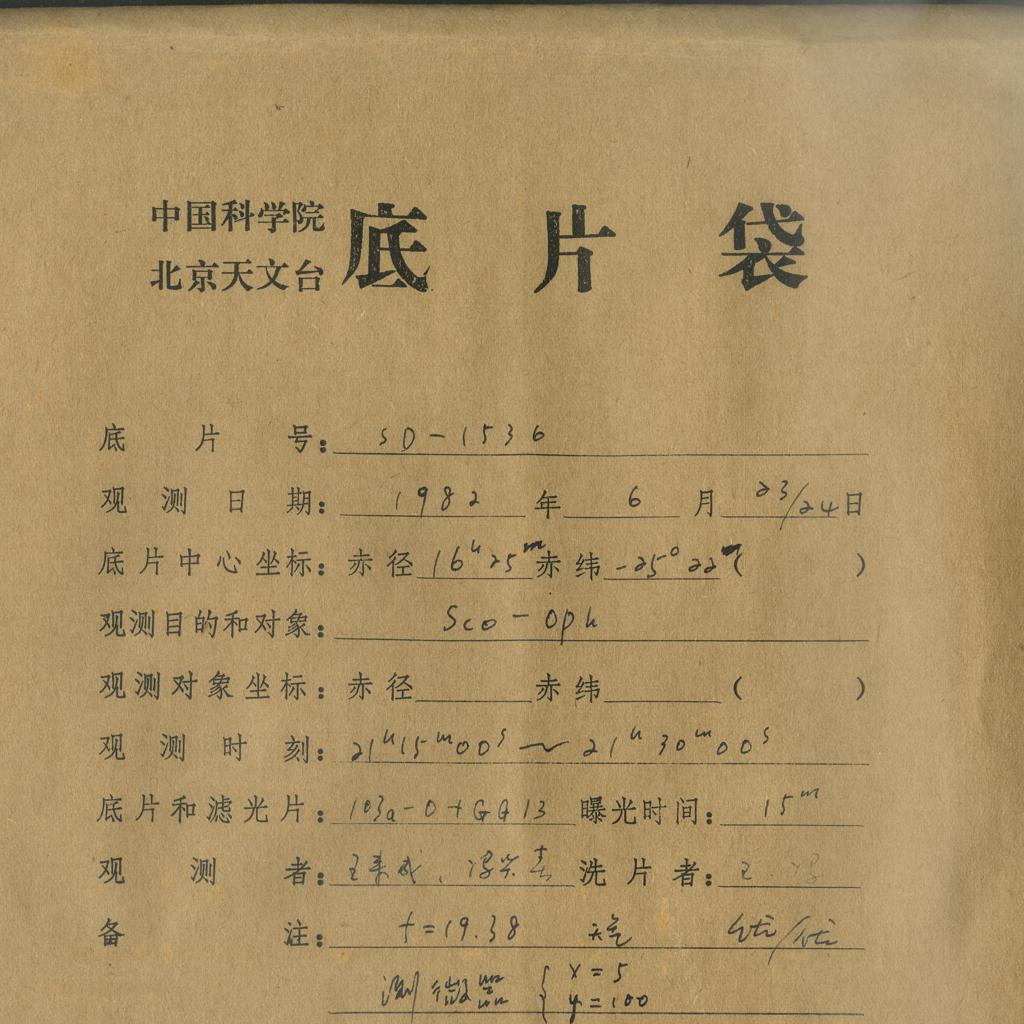 中国科学院
北京天文台
底片袋
底片号: SD-1536
观测日期: 1982年6月23/24日
底片中心坐标: 赤径 16h25m 赤纬 -25°22′( )
观测目的和对象: Sco-Oph
观测对象坐标: 赤径 赤纬 ( )
观测时刻: 21h15m00s ~ 21h30m00s
底片和滤光片: 103a-O+GG13 曝光时间: 15m
观测者: 王 、冯兴春 洗片者: 王.冯
备注: f=19.38 天气
测微器 { x=5
y=100